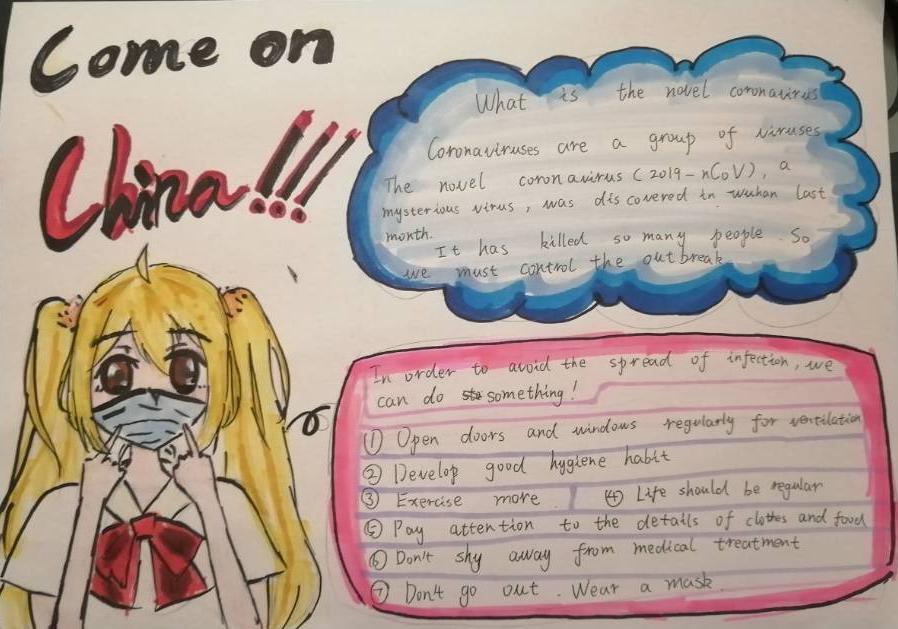 Come on
China!!!
What is the novel coronavirus
Coronaviruses are a group of viruses
The novel coronavirus (2019-nCoV), a
mysterious virus, was discovered in wuhan last
month.
It has killed so many people. So
we must control the outbreak
In order to avoid the spread of infection, we
can do something!
① Open doors and windows regularly for ventilation
② Develop good hygiene habit
③ Exercise more. ④ Life should be regular
⑤ Pay attention to the details of clothes and food
⑥ Don't shy away from medical treatment
⑦ Don't go out. Wear a mask.